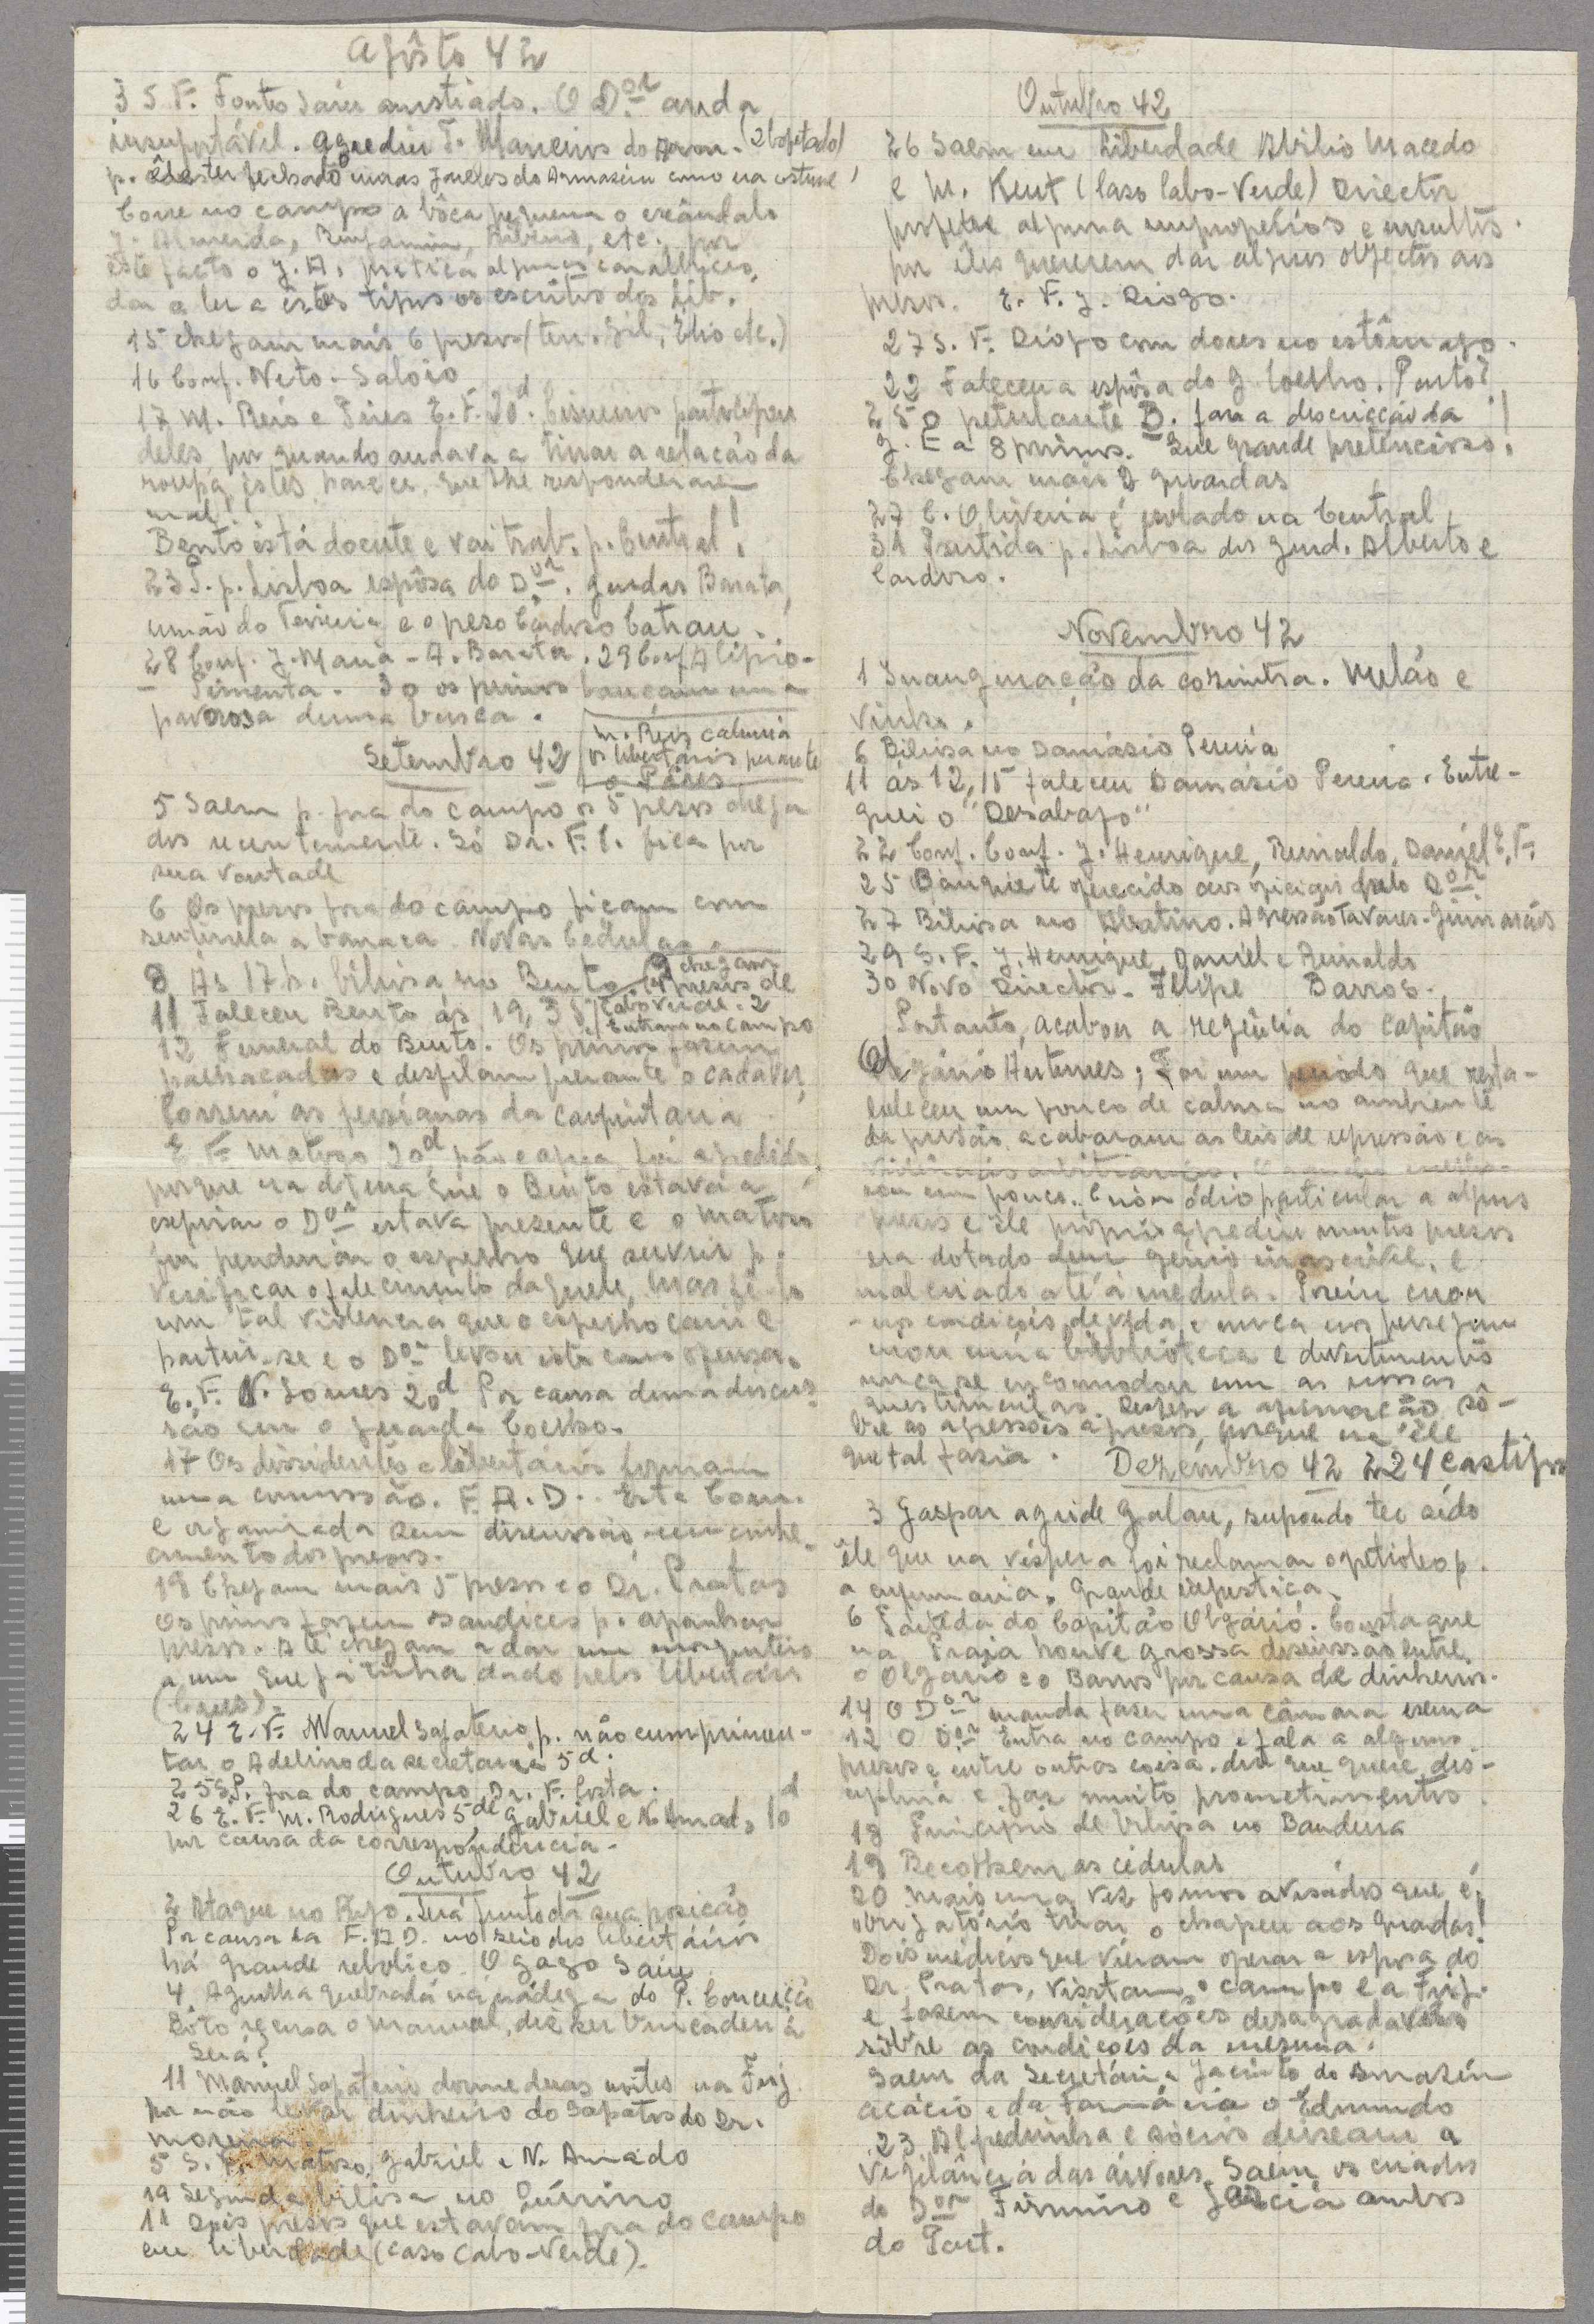 Agôsto 42
3 S. F. Fontes Saiu amnistiado. O D.or anda
insuportável. Agrediu F. Marceneiros do Arm. (2 bofetadas)
p. êste ter fechado umas janelas do Armazem como era costume
Corre no campo a bôca pequena o escândalo
J. Almeida, Benjamim, Ribeiro, etc. por
êste facto o J. A. pratica algumas canalhices,
dar a ler a êstes tipos os escritos dos Lib.
15 chegam mais 6 presos (ten. Gil, Élio etc.)
16 Conf. Neto - Saloio
17 M. Reis e Pires E. F. 20d. Cisneiros participou
deles, por quando andava a tirar a relação da
roupa, êstes parece que lhe responderam
mal
Bento está doente e vai trab. p. Central!
23 S. p. Lisboa espôsa do D.or, guardas Barata,
irmão do Teixeira e o preso Cardoso Catrau.
28 Conf. J. Maria - A. Barata. 29 Conf Alipio -
- Pimenta. 30 os primos lançam uma
pavorosa duma busca.
M. Reis calunia
os libertários perante
o Pires
Setembro 42
5 Saem p. fora do campo os 5 presos chega
dos recentemente. Só Dr. F. C. fica por
sua vontade
6 Os presos fora do campo ficam com
sentinela a barraca. Novas Cedulas.
8 Às 17 h. biliosa no Bento. (9 chegam
4 presos de
Cabo Verde. 2
Entram no campo
11 Faleceu Bento às 19,35
12 Funeral do Bento. Os primos fazem
palhaçadas e desfilam perante o cadaver
Correm as persianas da carpintaria
E. F. Matoso 20d pão e agua foi a pedido
porque na altura que o Bento estava a
expirar o D.or estava presente e o Matoso
foi pendurar o espelho que serviu p.
verificar o falecimento daquele, mas fê-lo
com tal violencia que o espelho caiu e
partiu-se e o D.or levou isto como ofensa.
E. F. N. Gomes 20d Por causa duma discus-
são com o guarda Coelho.
17 Os dissidentes e libertários formam
uma comissão. F. A. D. Esta Com.
é organizada sem discussão nem conhe-
cimento dos presos.
19 Chegam mais 5 presos e o Dr. Pratas
Os primos fazem sandices p. apanhar
presos. Até chegam a dar um mosquiteiro
a um que já tinha dado pelos libertários
24 E. F. Manuel Sapateiro p. não cumprimen-
tar o Adelino da secretaria 5d.
25 S. P. fora do campo Dr. F. Costa.
26 E. F. M. Rodrigues 5d e Gabriel e N. Amado 10d
por causa da correspondência.
Outubro 42
2 Ataque no Rijo. Será fruto da sua posição
Por causa da F.A.D. no seio dos libertários
há grande rebolico. O Gago Saiu
4 Agulha quebrada na nádega do P. Conceição
Bôto acusa o Manuel, diz ser brincadeira
Será?
11 Manuel Sapateiro dorme duas noites na Frig.
por não levar dinheiro do sapatos do Dr.
Moreira
5 S. F. Matoso, Gabriel e N. Amado
19 Segunda biliosa no Quirino
11 Dois presos que estavam fora do campo
em liberdade (caso Cabo-Verde).
Outubro 42
26 Saem em Liberdade Abilio Macedo
e M. Kent (caso Cabo-Verde) Director
profere alguns improperios e insultos
por êles quererem dar alguns objectos aos
presos. E. F. J. Diogo.
27 S. F. Diogo com dores no estômago.
22 Faleceu a espôsa do J. Coelho. Parto?
25 O petulante B. fara a descricção da
g. E a 8 primos. Que grande pretencioso!
Chegam mais 2 guardas
27 C. Oliveira é isolado na Central
31 Partida p. Lisboa dos guard. Alberto e
Cardoso.
Novembro 42
1 Inauguração da cosinha. Melão e
vinho.
6 Biliosa no Damásio Pereira
11 às 12,15 faleceu Damásio Pereira. Entre-
guei o "Desabafo"
22 Conf. Conf. J. Henrique, Reinaldo, Daniel E. F.
25 Banquete oferecido aos oficiais pelo D.or
27 Biliosa no Albertino. Agressão Tavares-Guimarães
29 S. F. J. Henrique, Daniel e Reinaldo
30 Novo Director. Filipe Barros.
Portanto, acabou a regência do Capitão
Olgário Antunes; Foi um período que resta-
beleceu um pouco de calma no ambiente
da prisão, acabaram as leis de repressão e as
com um pouco. Criou ódio particular a alguns
presos e êle próprio agrediu muitos presos
era dotado dum génio irascivel, e
malcriado até á medula. Porém criou
-nos condições de vida, e nunca nos perseguiu
criou uma biblioteca e divertimentos
nunca se incomodou com as nossas
questiunculas. Desfez a afirmação sô-
bre as agressões a presos, porque era êle
que tal fazia.
Dezembro 42 224 castigos
3 Gaspar agride Galau, supondo ter sido
êle que na véspera foi reclamar o petroleo p.
a enfermaria. Grande injustiça.
6 Saída do Capitão Olgário. Consta que
na Praia houve grossa discussão entre
o Olgário e o Barros por causa de dinheiro.
14 O D.or manda fazer uma câmara escura
12 O D.or Entra no campo e fala a alguns
presos e entre outras coisa diz que quere dis-
ciplina e faz muito prometimentos.
18 Principio de biliosa no Bandeira
19 Recolhem as cédulas
20 Mais uma vez fomos avisados que é
obrigatório tirar o chapeu aos guardas!
Dois médicos que vieram operar a esposa do
Dr. Pratas, visitam o campo e a Frig.
e fazem considerações desagradáveis
sôbre as condições da mesma.
Saem da Secretária Jacinto do Armazén
Acácio e da Farmácia o Edmundo
23 Alpedrinha e sócios deixam a
vigilância das árvores. Saem os criados
do D.or Firmino e Garcia ambos
do Part.